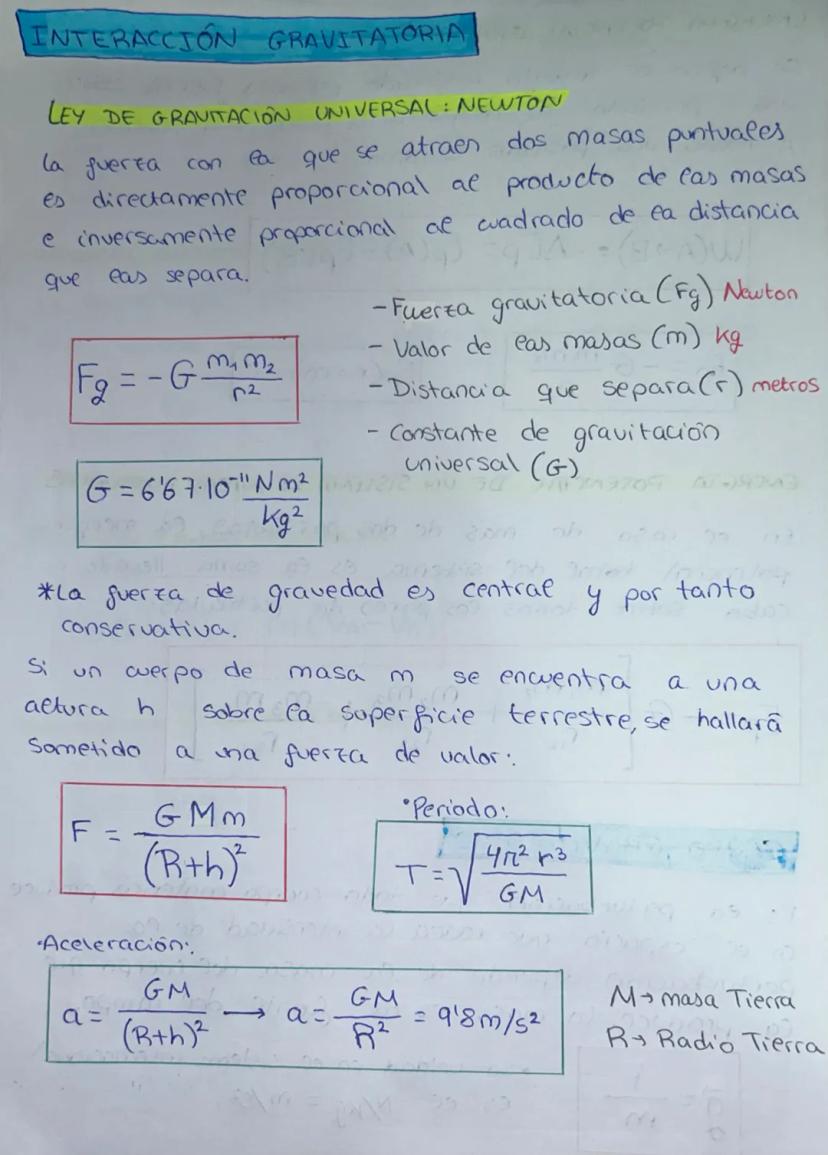 INTERACCIÓN GRAVITATORIA
LEY DE GRAVITACIÓN UNIVERSAL: NEWTON
La fuerza con la que se atraen dos masas puntuales
es directamente proporcional al producto de las masas
e inversamente proporcional al cuadrado de la distancia
que las separa.
- Fuerza gravitatoria (Fg) Newton
- Valor de las masas (m) kg
- Distancia que separa (r) metros
- Constante de gravitación
universal (G)
Fg = -G m₁ m₂ / r²
G = 6'67·10⁻¹¹ Nm² / kg²
*La fuerza de gravedad es central y por tanto
conservativa.
Si un cuerpo de masa m se encuentra a una
altura h sobre la superficie terrestre, se hallará
sometido a una fuerza de valor:
F = G M m / (R+h)²
·Periodo:
T = √(4π² r³ / GM)
·Aceleración:
a = GM / (R+h)² → a = GM / R² = 9'8 m/s²
M → masa Tierra
R → Radio Tierra